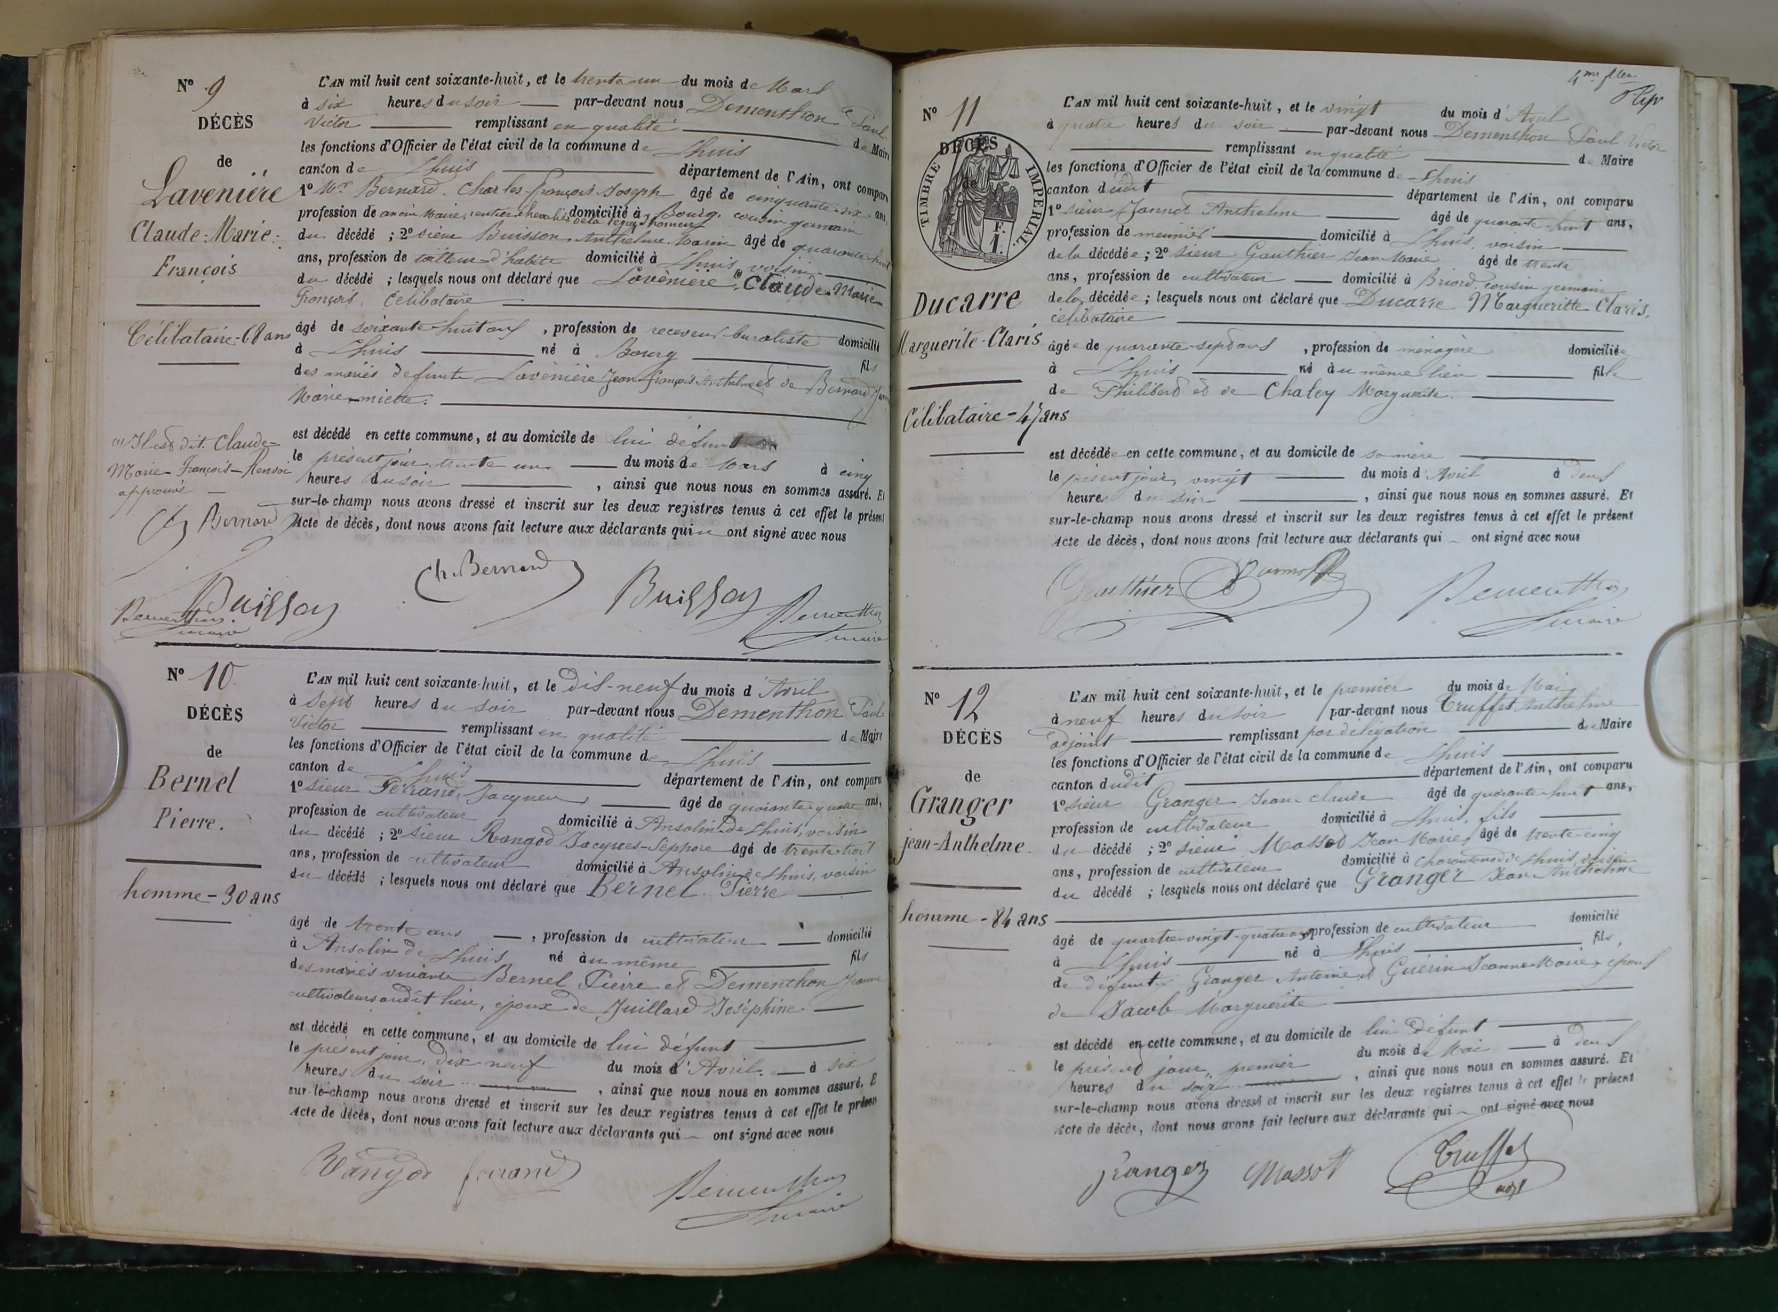 N° 9
DÉCÈS
de
Lavenière
Claude-Marie-
François
Célibataire-68 ans
(1) Il est dit Claude-
Marie-François-
approuvé
Ch Bernard
L'AN mil huit cent soixante-huit, et le trente un du mois de Mars
à six heures du soir par-devant nous Dementhon Paul
Victor remplissant en qualité de Maire
les fonctions d'Officier de l'état civil de la commune de Lhuis
canton de Lhuis département de l'Ain, ont comparu
1° Mr Bernard Charles-françois-Joseph âgé de cinquante-six ans,
profession de ancien Maire, rentier, chevalier de la légion d'honneur domicilié à Bourg, cousin germain
du décédé ; 2° sieur Buisson Anthelme Marin âgé de quarante-huit
ans, profession de domicilié à Lhuis, voisin
du décédé ; lesquels nous ont déclaré que Lavènière, Claude-Marie-
François, célibataire
âgé de soixante-huit ans, profession de receveur-buraliste domicilié
à Lhuis né à Bourg fils
des mariés défunts Lavenière Jean françois Anthelme et de Bernard
Marie-miette.
est décédé en cette commune, et au domicile de lui défunt
le présent jour, trente un du mois de Mars à cinq
heures du soir, ainsi que nous nous en sommes assuré. Et
sur-le-champ nous avons dressé et inscrit sur les deux registres tenus à cet effet le présent
Acte de décès, dont nous avons fait lecture aux déclarants qui ont signé avec nous
Ch. Bernard Buisson Dementhon
maire
Buisson
Dementhon
maire
N° 10
DÉCÈS
de
Bernel
Pierre.
homme-30 ans
L'AN mil huit cent soixante-huit, et le dix-neuf du mois d'Avril
à sept heures du soir par-devant nous Dementhon Paul
Victor remplissant en qualité de Maire
les fonctions d'Officier de l'état civil de la commune de Lhuis
canton de Lhuis département de l'Ain, ont comparu
1° sieur Ferrand Jacques âgé de quarante-quatre ans,
profession de cultivateur domicilié à Ansolin de Lhuis, voisin
du décédé ; 2° sieur Rangod Jacques-Josephe âgé de trente-huit
ans, profession de cultivateur domicilié à Ansolin de Lhuis, voisin
du décédé ; lesquels nous ont déclaré que Bernel Pierre
âgé de trente ans, profession de cultivateur domicilié
à Ansolin de Lhuis né au même fils
des mariés vivants Bernel Pierre et Dementhon Jeanne
cultivateurs audit lieu, époux de Juillard Joséphine
est décédé en cette commune, et au domicile de lui défunt
le présent jour, dix neuf du mois d'Avril à six
heures du soir, ainsi que nous nous en sommes assuré. E
sur-le-champ nous avons dressé et inscrit sur les deux registres tenus à cet effet le présent
Acte de décès, dont nous avons fait lecture aux déclarants qui ont signé avec nous
Rangod ferrand Dementhon
maire
N° 11
DÉCÈS
de
TIMBRE IMPÉRIAL
1 F.
Ducarre
Marguerite-Claris
Célibataire-47 ans
L'AN mil huit cent soixante-huit, et le vingt du mois d'Avril
à quatre heures du soir par-devant nous Dementhon Paul Victor
remplissant en qualité de Maire
les fonctions d'Officier de l'état civil de la commune de Lhuis
canton dudit département de l'Ain, ont comparu
1° sieur Jannot Anthelme âgé de quarante-huit ans,
profession de meunier domicilié à Lhuis, voisin
de la décédée ; 2° sieur Gauthier Jean Marie âgé de trente
ans, profession de cultivateur domicilié à Briord, cousin germain
de la décédée ; lesquels nous ont déclaré que Ducarre Marguerite-Claris,
célibataire
âgée de quarante-sept ans, profession de ménagère domiciliée
à Lhuis né au même lieu fille
de Philibert et de Chaley Marguerite.
est décédée en cette commune, et au domicile de sa mère
le présent jour, vingt du mois d'Avril à deux
heures du soir, ainsi que nous nous en sommes assuré. Et
sur-le-champ nous avons dressé et inscrit sur les deux registres tenus à cet effet le présent
Acte de décès, dont nous avons fait lecture aux déclarants qui ont signé avec nous
Gauthier Dementhon
maire
N° 12
DÉCÈS
de
Granger
jean-Anthelme.
homme-84 ans
L'AN mil huit cent soixante-huit, et le premier du mois de Mai
à neuf heures du soir par-devant nous Truffet Anthelme
adjoint remplissant par délégation de Maire
les fonctions d'Officier de l'état civil de la commune de Lhuis
canton dudit département de l'Ain, ont comparu
1° sieur Granger Jean claude âgé de quarante-huit ans,
profession de cultivateur domicilié à Lhuis, fils
du décédé ; 2° sieur Massot Jean Marie âgé de trente-cinq
ans, profession de cultivateur domicilié à de Lhuis, voisin
du décédé ; lesquels nous ont déclaré que Granger Jean Anthelme
âgé de quatre-vingt-quatre ans, profession de cultivateur domicilié
à Lhuis né à Lhuis, fils,
de défunts Granger Antoine et Guérin Jeanne-Marie, époux
de Jacob Marguerite
est décédé en cette commune, et au domicile de lui défunt
le présent jour, premier du mois de Mai à deux
heures du soir, ainsi que nous nous en sommes assuré. Et
sur-le-champ nous avons dressé et inscrit sur les deux registres tenus à cet effet le présent
Acte de décès, dont nous avons fait lecture aux déclarants qui ont signé avec nous
Granger Massot Truffet
adjt